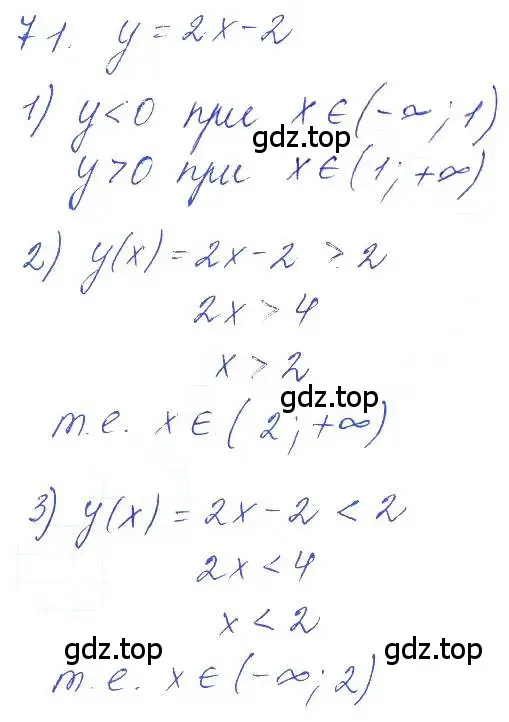 71. y = 2x - 2
1) y < 0 при x ∈ (-∞; 1)
gdz.top
y > 0 при x ∈ (1; +∞)
2) y(x) = 2x - 2 > 2
2x > 4
x > 2
gdz.top
т.е. x ∈ (2; +∞)
3) y(x) = 2x - 2 < 2
2x < 4
x < 2
gdz.top
т.е. x ∈ (-∞; 2)